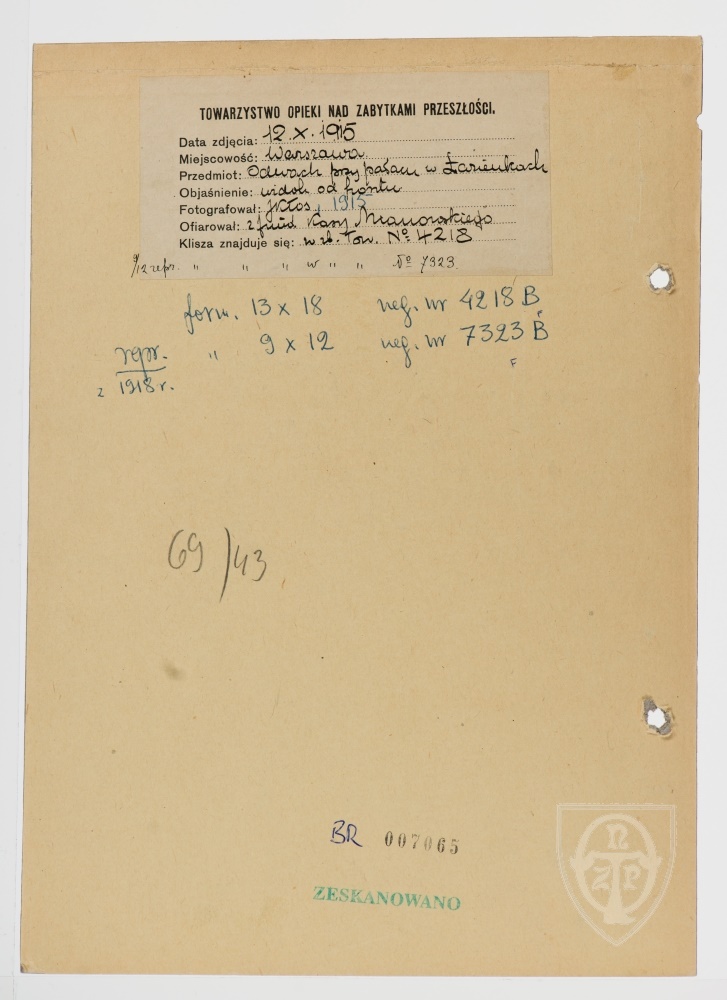 TOWARZYSTWO OPIEKI NAD ZABYTKAMI PRZESZŁOŚCI.
Data zdjęcia: 12.X.1915
Miejscowość: Warszawa
Przedmiot: Odwach przy pałacu w Łazienkach
Objaśnienie: widok od frontu
Fotografował: JKłos, 1915
Ofiarował: z fund Kasy Mianowskiego
Klisza znajduje się: w zb. Tow. № 4218
9/12 repr. " " " w " " № 7323
form. 13 x 18 neg. nr 4218 B
repr. " 9 x 12 neg. nr 7323 B
z 1918 r. F
69/43
BR 007065
ZESKANOWANO
TONZP